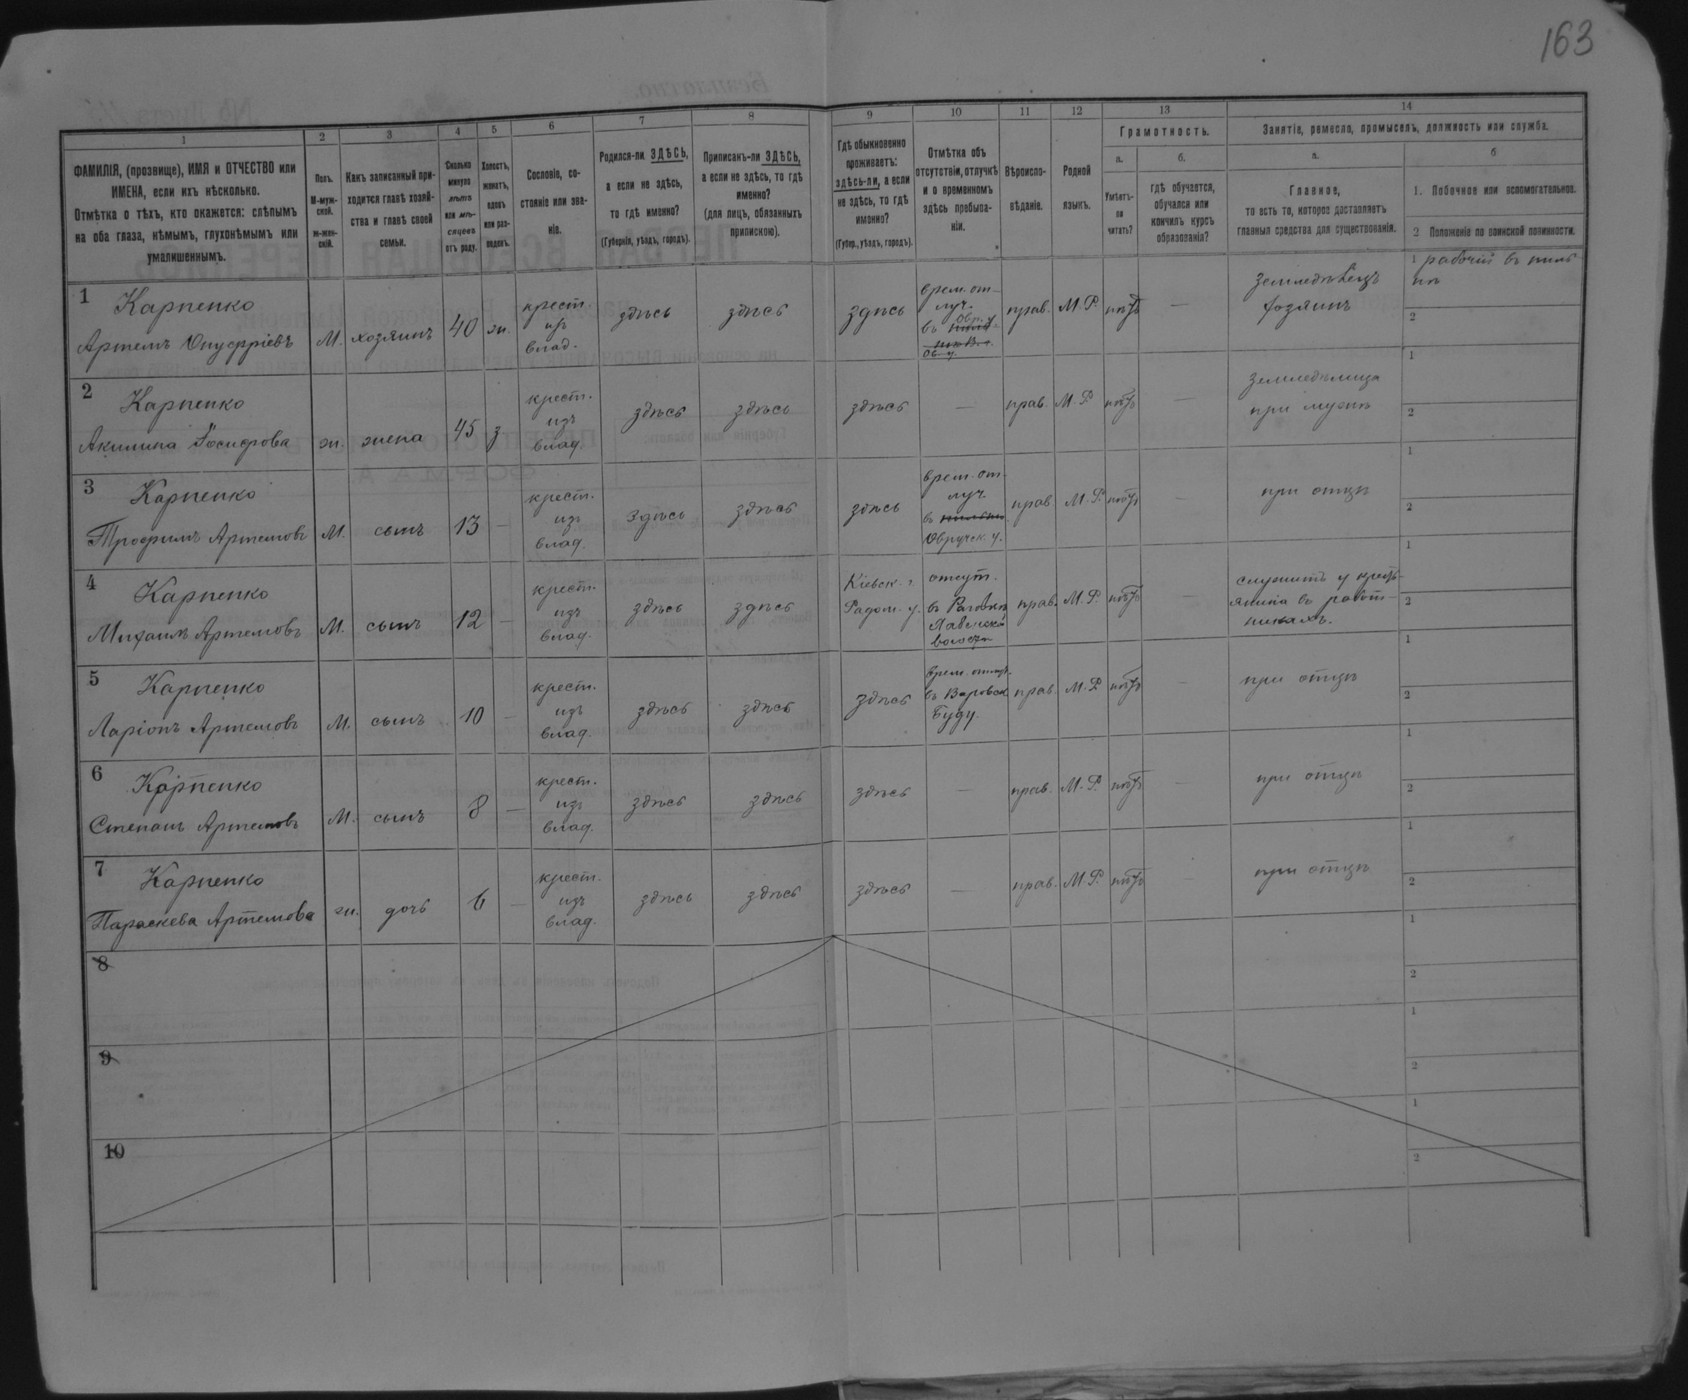 163
1 2 3 4 5 6 7 8 9 10 11 12 13 14
ФАМИЛІЯ, (прозвище), ИМЯ и ОТЧЕСТВО или
ИМЕНА, если ихъ нѣсколько.
Отмѣтка о тѣхъ, кто окажется: слѣпымъ
на оба глаза, нѣмымъ, глухонѣмымъ или
умалишеннымъ.
Полъ.
М-муж-
ской.
ж-жен-
скій.
Какъ записанный при-
ходится главѣ хозяй-
ства и главѣ своей
семьи.
Сколько
минуло
лѣтъ
или мѣ-
сяцевъ
отъ роду.
Холостъ,
женатъ,
вдовъ
или раз-
веденъ.
Сословіе, со-
стояніе или зва-
ніе.
Родился-ли ЗДѢСЬ,
а если не здѣсь,
то гдѣ именно?
(Губернія, уѣздъ, городъ).
Приписанъ-ли ЗДѢСЬ,
а если не здѣсь, то гдѣ
именно?
(для лицъ, обязанныхъ
припискою).
Гдѣ обыкновенно
проживаетъ:
здѣсь-ли, а если
не здѣсь, то гдѣ
именно?
(Губер., уѣздъ, городъ).
Отмѣтка объ
отсутствіи, отлучкѣ
и о временномъ
здѣсь пребыва-
ніи.
Вѣроиспо-
вѣданіе.
Родной
языкъ.
Грамотность.
а.
Умѣетъ-
ли
читать?
б.
гдѣ обучается,
обучался или
кончилъ курсъ
образованія?
Занятіе, ремесло, промыселъ, должность или служба.
а.
Главное,
то есть то, которое доставляетъ
главныя средства для существованія.
б
1. Побочное или вспомогательное.
2 Положеніе по воинской повинности.
1 Карпенко
Артемъ Онуфріевъ
М. хозяинъ 40 ж.
крест.
изъ
влад.
здѣсь здѣсь здѣсь
врем. от-
луч.
прав. М.Р. нѣтъ —
Земледѣлецъ
хозяинъ
1 рабочій въ
2
2 Карпенко
Акилина Іосифова
ж. жена 45 з
крест.
изъ
влад.
здѣсь здѣсь здѣсь — прав. М.Р. нѣтъ —
земледѣлица
при мужѣ
1
2
3 Карпенко
Трофимъ Артемовъ
М. сынъ 13 —
крест.
изъ
влад.
здѣсь здѣсь здѣсь
врем. от-
луч.
въ
Овручск. у.
прав. М.Р. нѣтъ —
при отцѣ
1
2
4 Карпенко
Михаилъ Артемовъ
М. сынъ 12 —
крест.
изъ
влад.
здѣсь здѣсь
Кіевск. г.
Радом. у.
отсут.
въ
волости
прав. М.Р. нѣтъ —
служитъ у кресть-
янина въ работ-
никахъ.
1
2
5 Карпенко
Ларіонъ Артемовъ
М. сынъ 10 —
крест.
изъ
влад.
здѣсь здѣсь здѣсь
врем.
въ Варовск
Буду.
прав. М.Р. нѣтъ —
при отцѣ
1
2
6 Карпенко
Степанъ Артемовъ
М. сынъ 8 —
крест.
изъ
влад.
здѣсь здѣсь здѣсь — прав. М.Р. нѣтъ —
при отцѣ
1
2
7 Карпенко
Параскева Артемова
ж. дочь 6 —
крест.
изъ
влад.
здѣсь здѣсь здѣсь — прав. М.Р. нѣтъ —
при отцѣ
1
2
8
1
2
9
1
2
10
1
2